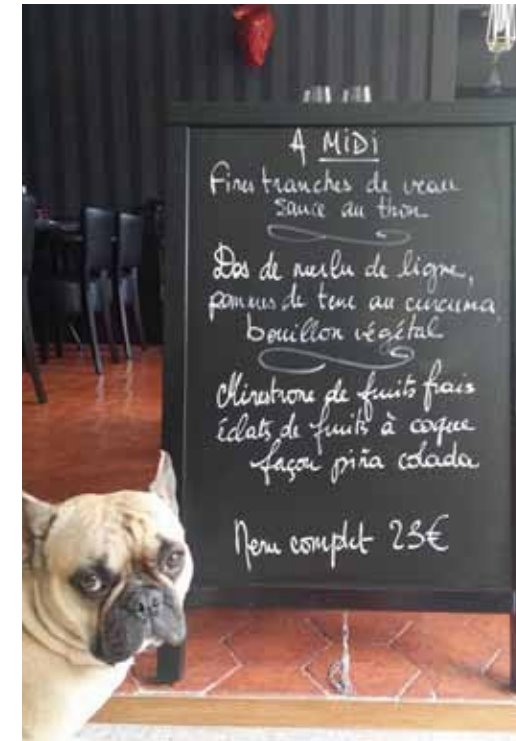 A MiDi
Fines tranches de veau
sauce au thon
Dos de merlu de ligne,
pommes de terre au curcuma
bouillon végétal
Minestrone de fruits frais
éclats de fruits à coque
façon piña colada
Menu complet 23€